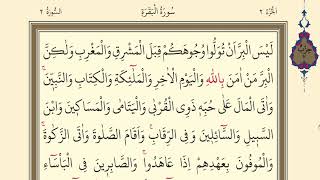 الجزء ٢
سورة البقرة
السورة ٢
لَيْسَ الْبِرَّ اَنْ تُوَلُّوا وُجُوهَكُمْ قِبَلَ الْمَشْرِقِ وَالْمَغْرِبِ وَلٰكِنَّ
الْبِرَّ مَنْ اٰمَنَ بِاللّٰهِ وَالْيَوْمِ الْاٰخِرِ وَالْمَلٰٓئِكَةِ وَالْكِتَابِ وَالنَّبِيّٖنَ
وَاٰتَى الْمَالَ عَلٰى حُبِّهٖ ذَوِى الْقُرْبٰى وَالْيَتَامٰى وَالْمَسَاكٖينَ وَابْنَ
السَّبٖيلِ وَالسَّٓائِلٖينَ وَفِى الرِّقَابِ وَاَقَامَ الصَّلٰوةَ وَاٰتَى الزَّكٰوةَ
وَالْمُوفُونَ بِعَهْدِهِمْ اِذَا عَاهَدُوا وَالصَّابِرٖينَ فِى الْبَأْسَٓاءِ